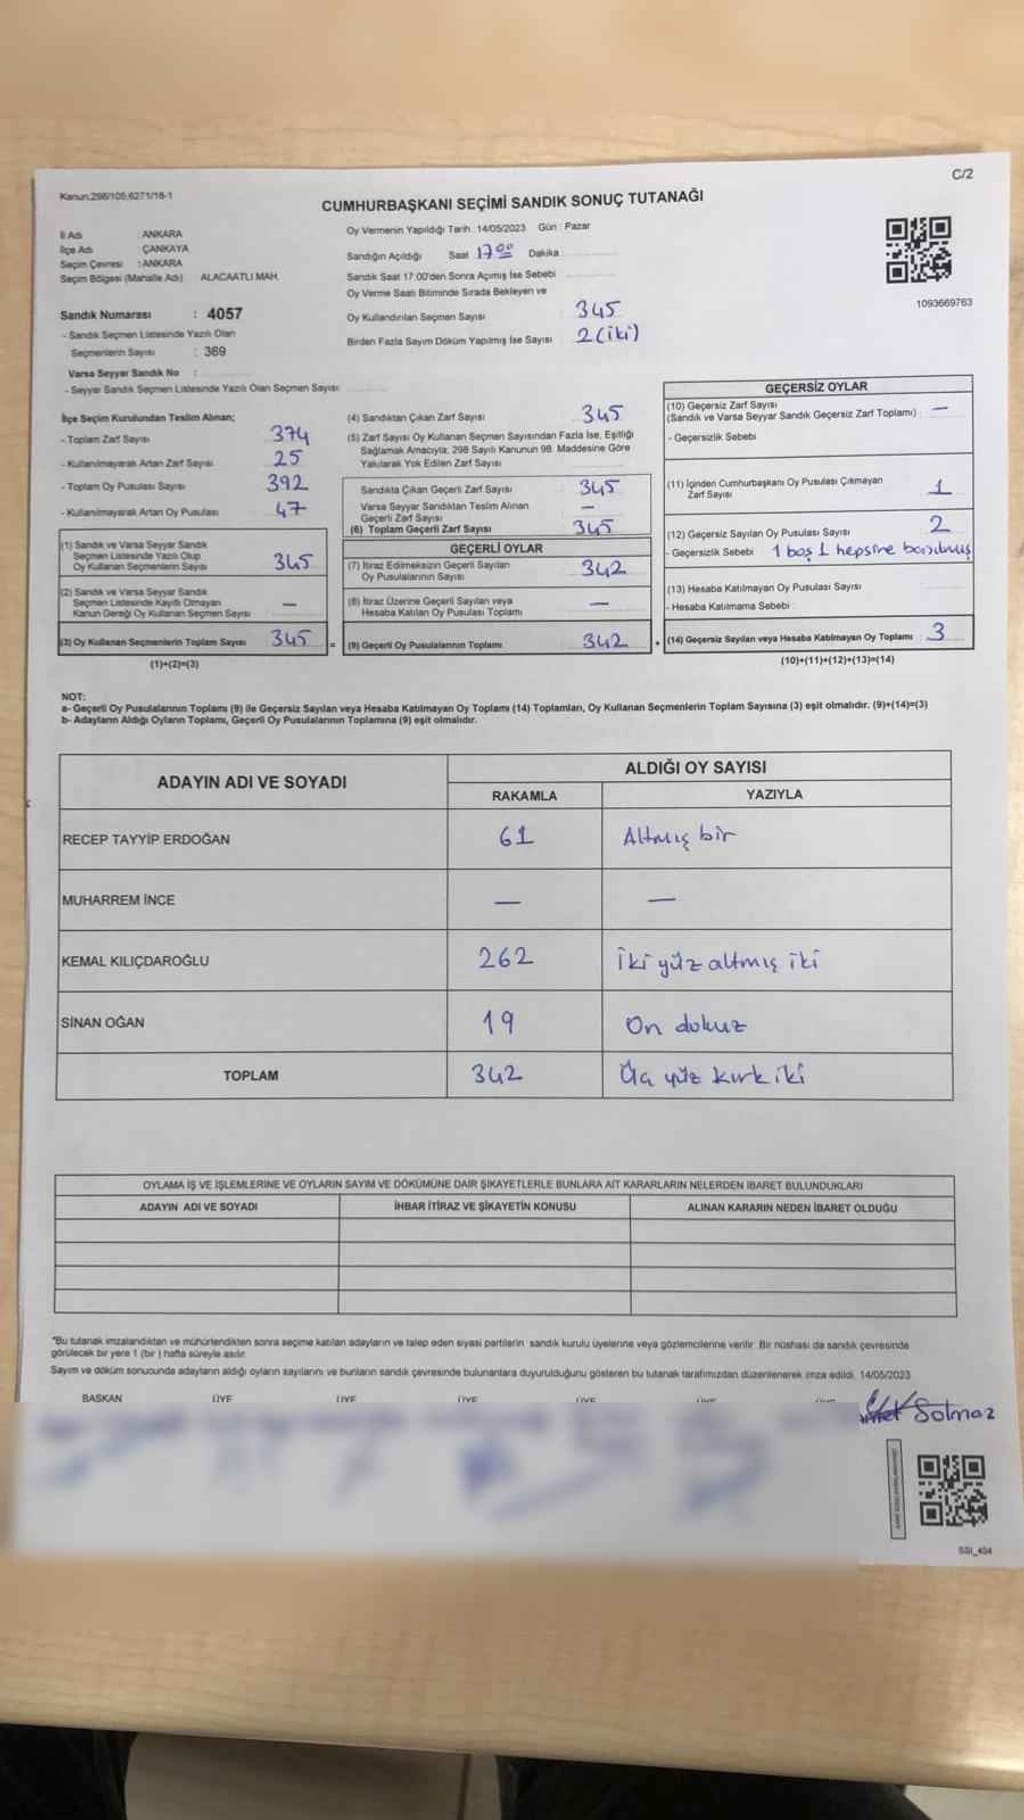 C/2
Kanun:298/105,6271/18-1
CUMHURBAŞKANI SEÇİMİ SANDIK SONUÇ TUTANAĞI
İl Adı : ANKARA
İlçe Adı : ÇANKAYA
Seçim Çevresi : ANKARA
Seçim Bölgesi (Mahalle Adı) ALACAATLI MAH.
Sandık Numarası : 4057
- Sandık Seçmen Listesinde Yazılı Olan
Seçmenlerin Sayısı : 369
Varsa Seyyar Sandık No :
- Seyyar Sandık Seçmen Listesinde Yazılı Olan Seçmen Sayısı
Oy Vermenin Yapıldığı Tarih :14/05/2023 Gün : Pazar
Sandığın Açıldığı Saat 17 00 Dakika
Sandık Saat 17:00'den Sonra Açımış İse Sebebi
Oy Verme Saati Bitiminde Sırada Bekleyen ve
Oy Kullandırılan Seçmen Sayısı 345
Birden Fazla Sayım Döküm Yapılmış İse Sayısı 2 (iki)
1093669763
İlçe Seçim Kurulundan Teslim Alınan;
- Toplam Zarf Sayısı 374
- Kullanılmayarak Artan Zarf Sayısı 25
- Toplam Oy Pusulası Sayısı 392
- Kullanılmayarak Artan Oy Pusulası 47
(1) Sandık ve Varsa Seyyar Sandık
Seçmen Listesinde Yazılı Olup
Oy Kullanan Seçmenlerin Sayısı 345
(2) Sandık ve Varsa Seyyar Sandık
Seçmen Listesinde Kayıtlı Olmayan
Kanun Gereği Oy Kullanan Seçmen Sayısı —
(3) Oy Kullanan Seçmenlerin Toplam Sayısı 345 =
(1)+(2)=(3)
(4) Sandıktan Çıkan Zarf Sayısı 345
(5) Zarf Sayısı Oy Kullanan Seçmen Sayısından Fazla İse, Eşitliği
Sağlamak Amacıyla; 298 Sayılı Kanunun 98. Maddesine Göre
Yakılarak Yok Edilen Zarf Sayısı
Sandıkta Çıkan Geçerli Zarf Sayısı 345
Varsa Seyyar Sandıktan Teslim Alınan
Geçerli Zarf Sayısı —
(6) Toplam Geçerli Zarf Sayısı 345
GEÇERLİ OYLAR
(7) İtiraz Edilmeksizin Geçerli Sayılan
Oy Pusulalarının Sayısı 342
(8) İtiraz Üzerine Geçerli Sayılan veya
Hesaba Katılan Oy Pusulası Toplamı —
(9) Geçerli Oy Pusulalarının Toplamı 342 +
GEÇERSİZ OYLAR
(10) Geçersiz Zarf Sayısı
(Sandık ve Varsa Seyyar Sandık Geçersiz Zarf Toplamı) —
- Geçersizlik Sebebi
(11) İçinden Cumhurbaşkanı Oy Pusulası Çıkmayan
Zarf Sayısı 1
(12) Geçersiz Sayılan Oy Pusulası Sayısı 2
- Geçersizlik Sebebi 1 boş 1 hepsine basılmış
(13) Hesaba Katılmayan Oy Pusulası Sayısı
- Hesaba Katılmama Sebebi
(14) Geçersiz Sayılan veya Hesaba Katılmayan Oy Toplamı 3
(10)+(11)+(12)+(13)=(14)
NOT:
a- Geçerli Oy Pusulalarının Toplamı (9) ile Geçersiz Sayılan veya Hesaba Katılmayan Oy Toplamı (14) Toplamları, Oy Kullanan Seçmenlerin Toplam Sayısına (3) eşit olmalıdır. (9)+(14)=(3)
b- Adayların Aldığı Oyların Toplamı, Geçerli Oy Pusulalarının Toplamına (9) eşit olmalıdır.
ADAYIN ADI VE SOYADI
ALDIĞI OY SAYISI
RAKAMLA YAZIYLA
RECEP TAYYİP ERDOĞAN 61 Altmış bir
MUHARREM İNCE — —
KEMAL KILIÇDAROĞLU 262 İki yüz altmış iki
SİNAN OĞAN 19 On dokuz
TOPLAM 342 Üç yüz kırk iki
OYLAMA İŞ VE İŞLEMLERİNE VE OYLARIN SAYIM VE DÖKÜMÜNE DAİR ŞİKAYETLERLE BUNLARA AİT KARARLARIN NELERDEN İBARET BULUNDUKLARI
ADAYIN ADI VE SOYADI İHBAR İTİRAZ VE ŞİKAYETİN KONUSU ALINAN KARARIN NEDEN İBARET OLDUĞU
*Bu tutanak imzalandıktan ve mühürlendikten sonra seçime katılan adayların ve talep eden siyasi partilerin sandık kurulu üyelerine veya gözlemcilerine verilir. Bir nüshası da sandık çevresinde
görülecek bir yere 1 (bir ) hafta süreyle asılır.
Sayım ve döküm sonucunda adayların aldığı oyların sayılarını ve bunların sandık çevresinde bulunanlara duyurulduğunu gösteren bu tutanak tarafımızdan düzenlenerek imza edildi. 14/05/2023
BAŞKAN ÜYE ÜYE ÜYE ÜYE ÜYE ÜYE
Solmaz